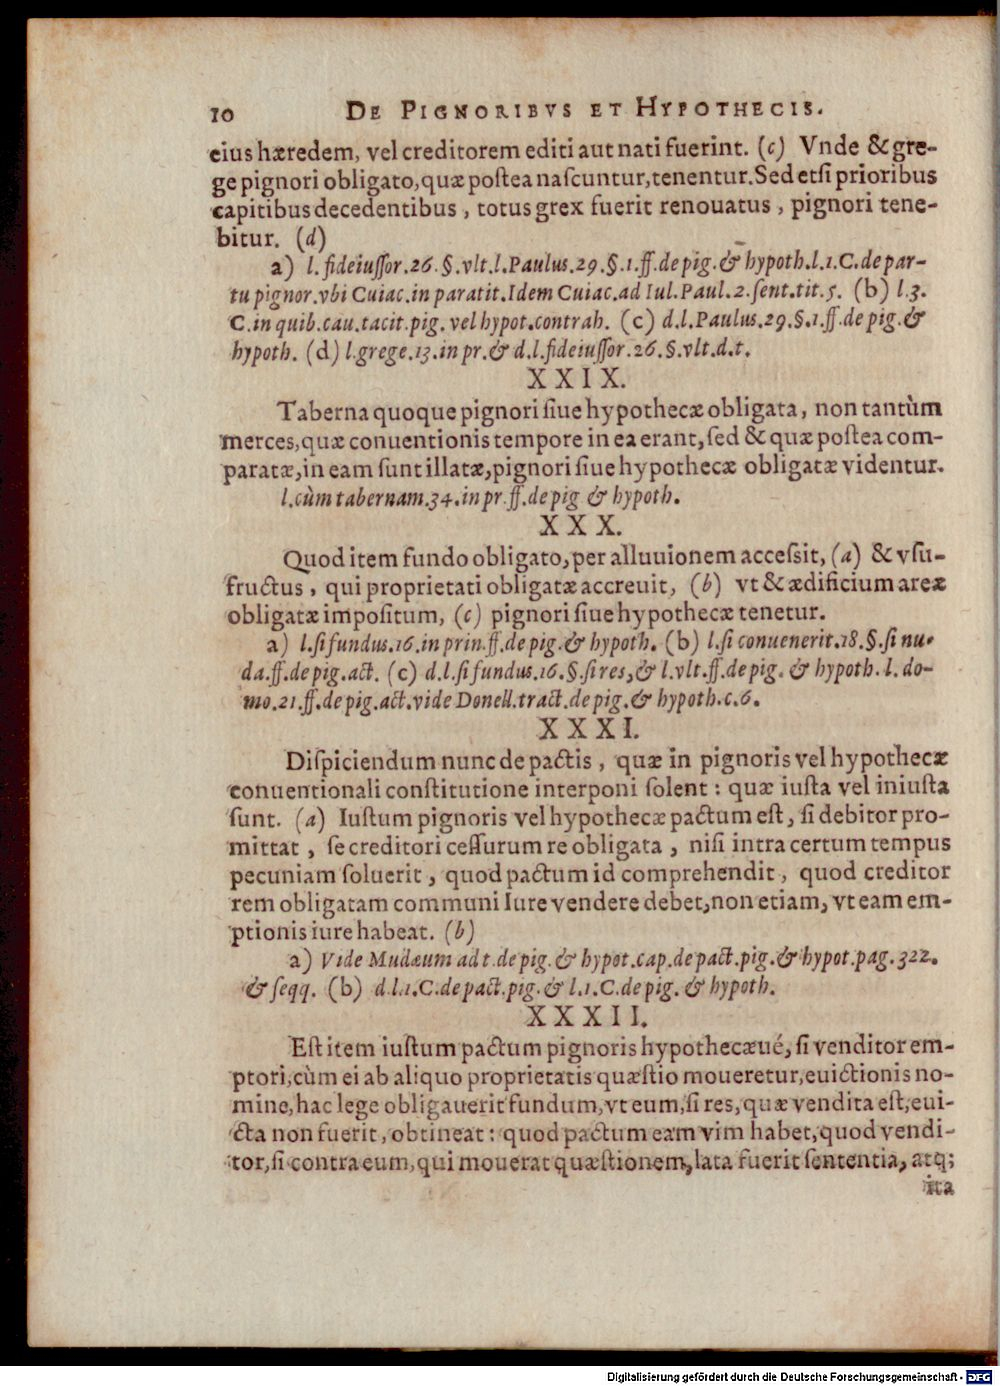 10 DE PIGNORIBVS ET HYPOTHECIS.
eius hæredem, vel creditorem editi aut nati fuerint. (c) Vnde & gre-
ge pignori obligato, quæ poſtea naſcuntur, tenentur. Sed etſi prioribus
capitibus decedentibus, totus grex fuerit renouatus, pignori tene-
bitur. (d)
a) l. fideiuſſor. 26. §. vlt. l. Paulus. 29. §. 1. ff. de pig. & hypoth. l. 1. C. de par-
tu pignor. vbi Cuiac. in paratit. Idem Cuiac. ad Iul. Paul. 2. ſent. tit. 5. (b) l. 3.
C. in quib. cau. tacit. pig. vel hypot. contrah. (c) d. l. Paulus. 29. §. 1. ff. de pig. &
hypoth. (d) l. grege. 13. in pr. & d. l. fideiuſſor. 26. §. vlt. d. t.
XXIX.
Taberna quoque pignori ſiue hypothecæ obligata, non tantùm
merces, quæ conuentionis tempore in ea erant, ſed & quæ poſtea com-
paratæ, in eam ſunt illatæ, pignori ſiue hypothecæ obligatæ videntur.
l. cùm tabernam. 34. in pr. ff. de pig & hypoth.
XXX.
Quod item fundo obligato, per alluuionem acceſſit, (a) & vſu-
fructus, qui proprietati obligatæ accreuit, (b) vt & ædificium areæ
obligatæ impoſitum, (c) pignori ſiue hypothecæ tenetur.
a) l. ſi fundus. 16. in prin. ff. de pig. & hypoth. (b) l. ſi conuenerit. 18. §. ſi nu-
da. ff. de pig. act. (c) d. l. ſi fundus. 16. §. ſi res, & l. vlt. ff. de pig. & hypoth. l. do-
mo. 21. ff. de pig. act. vide Donell. tract. de pig. & hypoth. c. 6.
XXXI.
Diſpiciendum nunc de pactis, quæ in pignoris vel hypothecæ
conuentionali conſtitutione interponi ſolent: quæ iuſta vel iniuſta
ſunt. (a) Iuſtum pignoris vel hypothecæ pactum eſt, ſi debitor pro-
mittat, ſe creditori ceſſurum re obligata, niſi intra certum tempus
pecuniam ſoluerit, quod pactum id comprehendit, quod creditor
rem obligatam communi Iure vendere debet, non etiam, vt eam em-
ptionis iure habeat. (b)
a) Vide Mudæum ad t. de pig. & hypot. cap. de pact. pig. & hypot. pag. 322.
& ſeqq. (b) d. l. 1. C. de pact. pig. & l. 1. C. de pig. & hypoth.
XXXII.
Eſt item iuſtum pactum pignoris hypothecæué, ſi venditor em-
ptori, cùm ei ab aliquo proprietatis quæſtio moueretur, euictionis no-
mine, hac lege obligauerit fundum, vt eum, ſi res, quæ vendita eſt, eui-
cta non fuerit, obtineat: quod pactum eam vim habet, quod vendi-
tor, ſi contra eum, qui mouerat quæſtionem, lata fuerit ſententia, atq;
ita
Digitalisierung gefördert durch die Deutsche Forschungsgemeinschaft - DFG